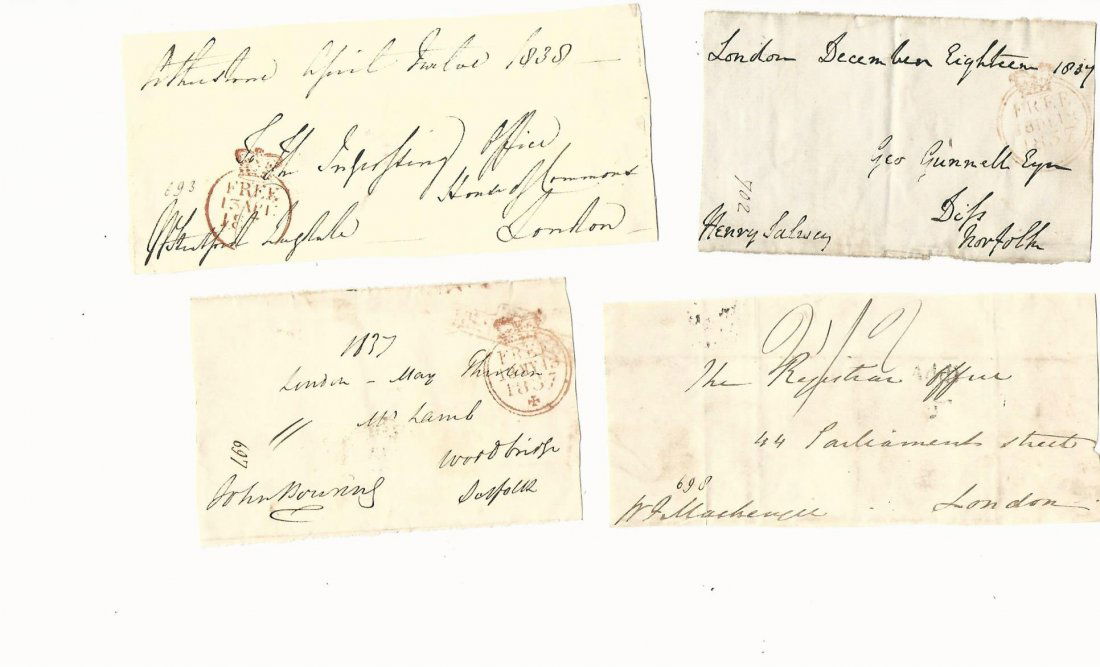 Atherstone April Twelve 1838
To The Inspecting Office
House of Commons
London
693
FREE
13 AP
18
London December Eighteen 1837
FREE
Geo Gunnell Esqr
Diss
Norfolk
702
Henry Salwey
1837
London - May Thirteen
" Mr Lamb
Woodbridge
Suffolk
697
John Bowring
FREE
1837
The Registrar Office
44 Parliament street
London
698
W F Mackenzie